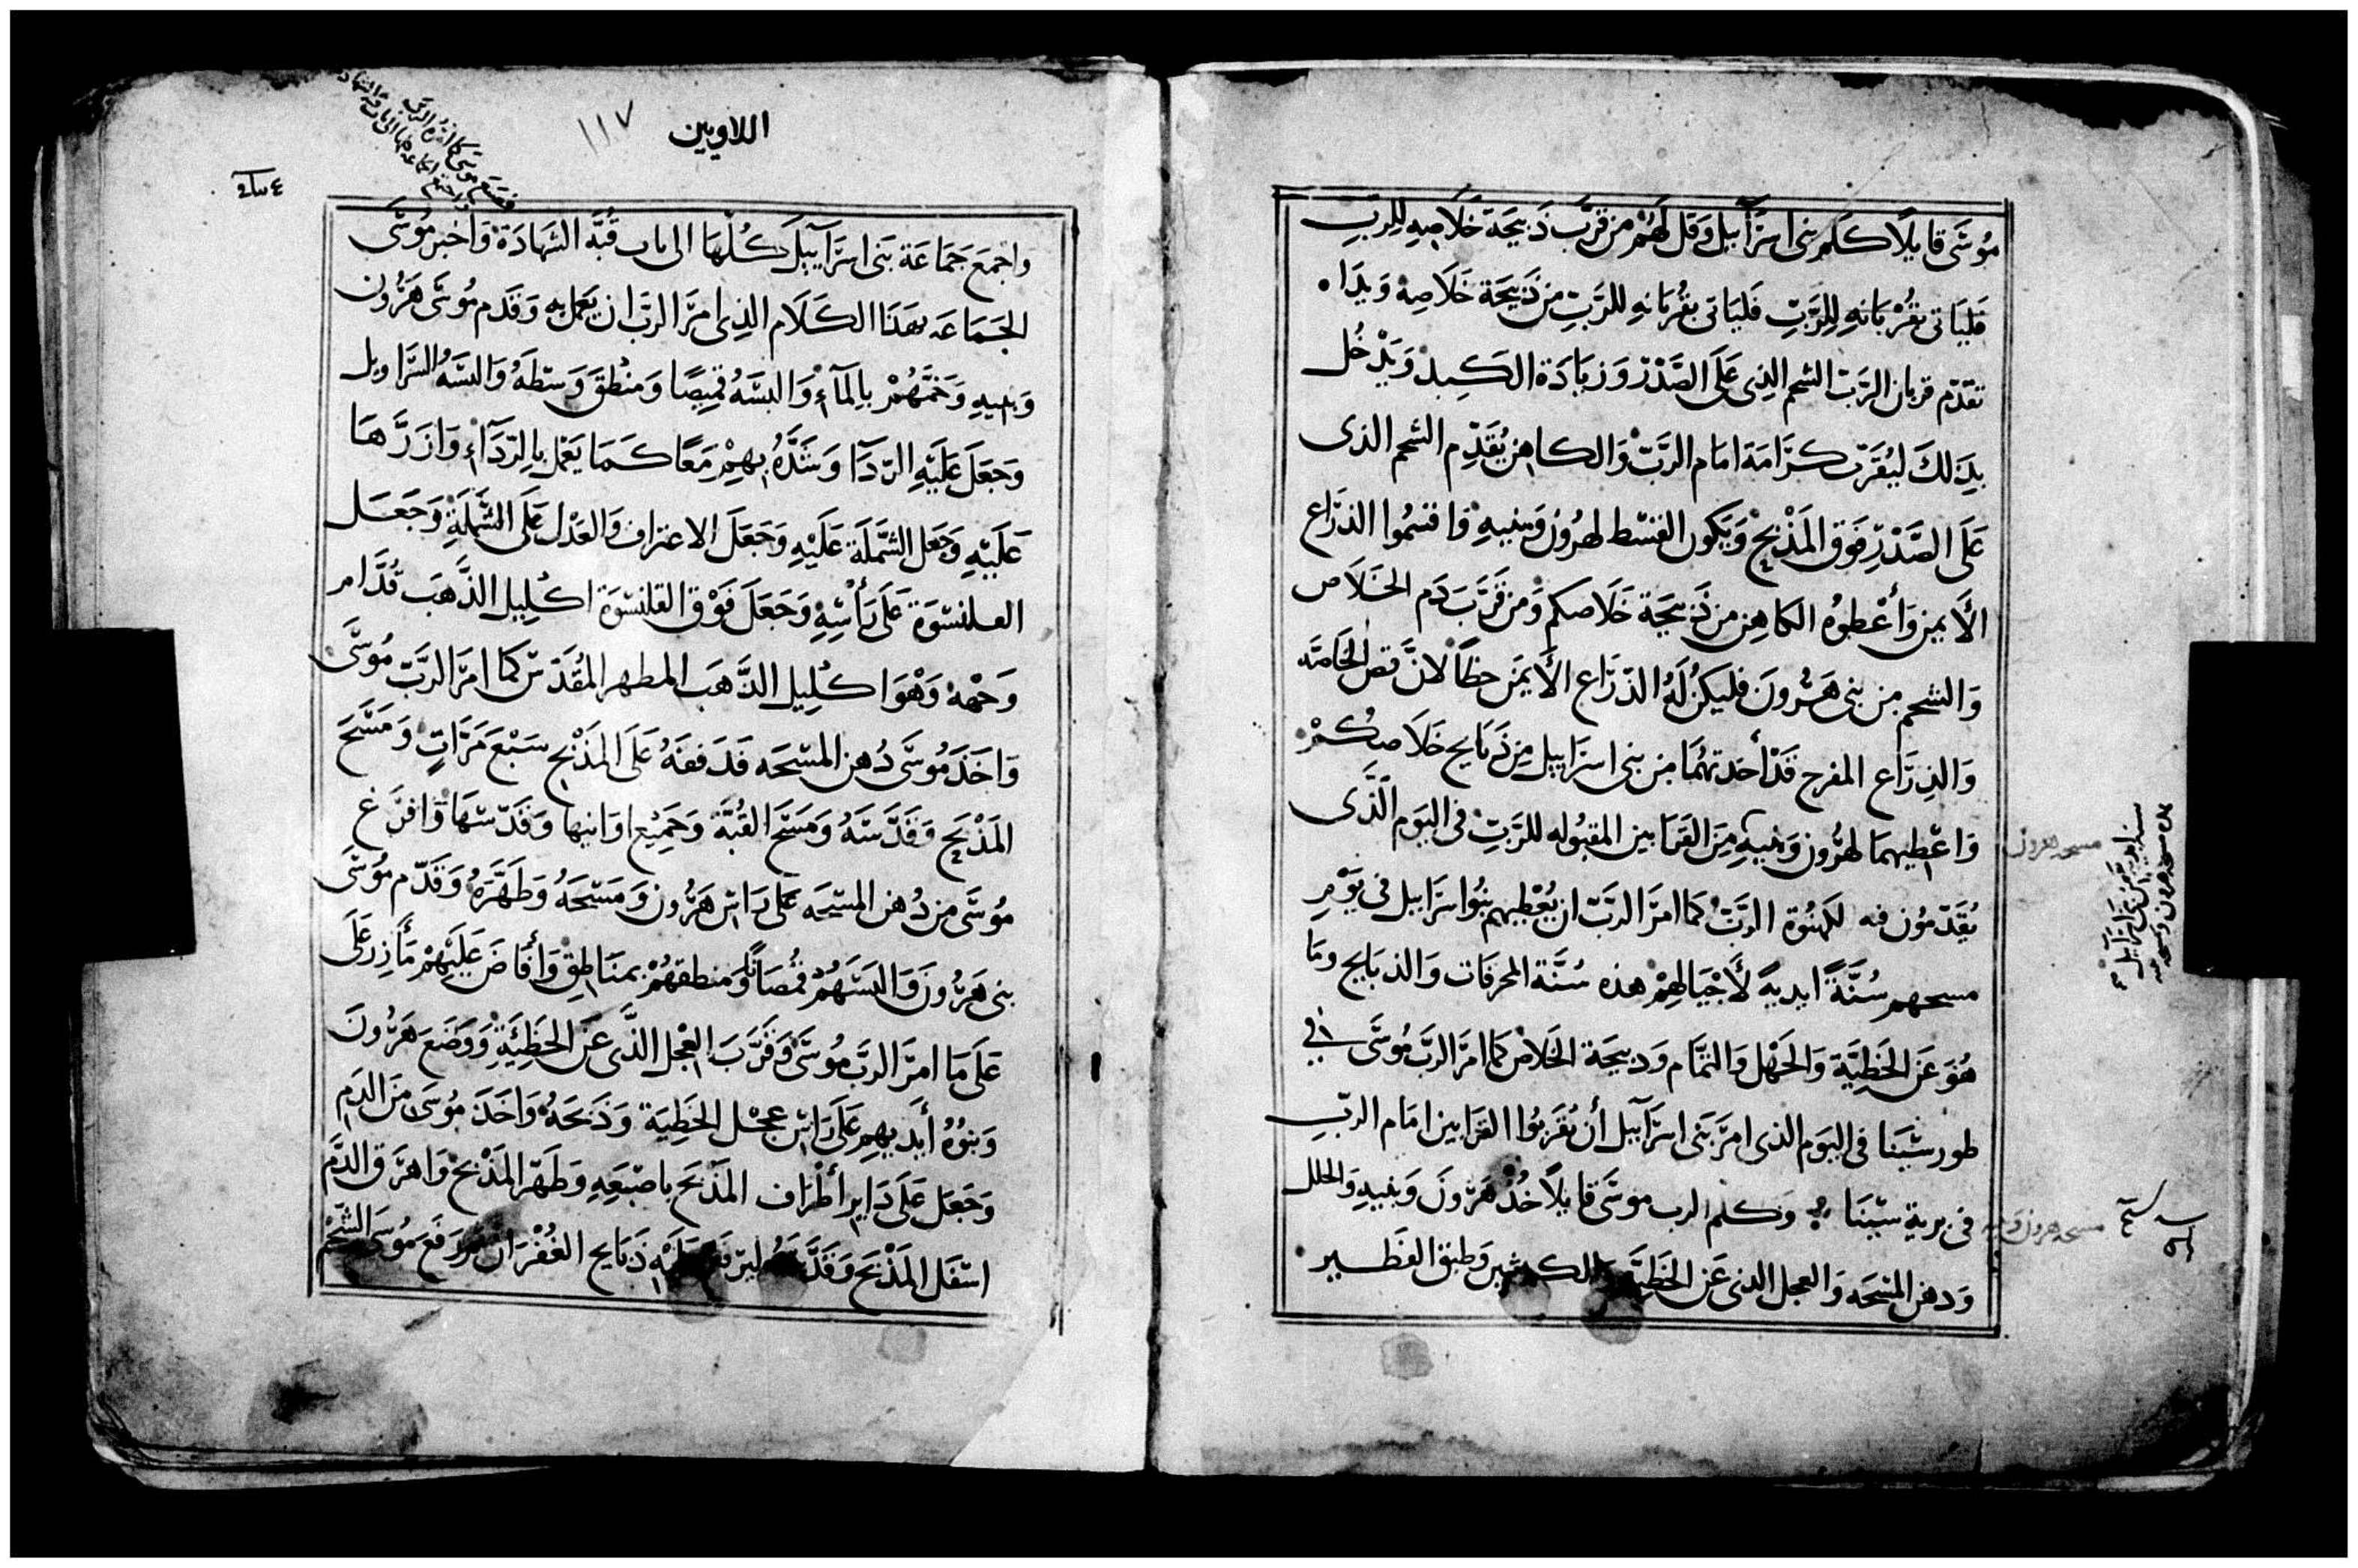 موسَى قايلًا كلم بنى اسرَآييل وَقل لَهُم من قرَّب ذَبيحَة خَلاصِهِ لِلربِّ
فَليَاتى بقُرْبَانهِ لِلرَّبِّ فَليَاتى بقُربَانهِ للرَّبِّ من ذَبيحَة خَلَاصِهْ وَيدَاه
تقدّم قربان الرَّبّ الشحم الذِى عَلَى الصَّدْرْ وَزيَادَة الكَبِدْ وَيَدْخُل
بذَلكَ ليُقرَبّ كرَامَة امَام الرَبّ وَالكاهِن يُقَدِّم الشحم الذى
عَلَى الصَّدْرِ فَوق المَذْبَحْ وَيَكون القسْط لهرُون وَبنيهِ فاقسمُوا الذرَّاع
الأَيمن وَأعْطوُه الكاهِن من ذَبيحَة خَلَاصكم وَمن قَرَّبَ دَم الخَلَاص
وَالشحم من بنى هَرُونَ فليَكنْ لَهُ الذرَاع الأَيمَن حظاً لانَّ قص الخَاصَّه
وَالذِرَّاع المفرج قَدْ أخدتهُمَا من بنى اسرَاييل مِن ذَبَايح خَلَاصِكُمْ
وَاعْطيهمَا لهَرُون وَبَنيهِ مِنَ القَرَابين المقبُوله للرَّبّ فى اليَوم الَّذى
يُقَدّمُون فيه لكهنُوة الرَّبّ كمَا امرَ الربّ ان يُعْطيهم بنُوا اسرَاييل فى يَوْم
مسحهم سُنَّةً ابديةً لأَجْيَالِهِمْ هذه سُنَّة المحرقات وَالذبَايح وَمَا
هُوَ عَن الخَطِيَّة وَالجَهْل وَالتمَام وَدبيحَة الخلَاص كمَا امرَ الربّ مُوسَى فى
طور سينَا فى اليَوم الذى امرَ بَنى اسرَآييل أن يُقرَبُوا القرَابين امَام الربّ
فى برية سينَا وَكلم الرب موسَى قايلاً خُذْ هَرُونَ وَبنيهِ وَالحلل
وَدهن المسْحَه وَالعجل الذى عَن الخَطِيَّة وَالكبشين وَطبق الفَطير
مسحه هرون
مسحه هرون وبنيه
اللاويين
١١٧
وَاجمعَ جَمَاعَة بَنى اسرَآييلَ كُلهَا الى باب قُبَّه الشهَادَة وَاخبر مُوسَى
الجَمَاعَه بهَذَا الكَلَام الذِى امرَ الربّ ان يَعمَل بهِ وَقَدم مُوسَى هَرُون
وَبنيهِ وَحَمَّهُمْ بالمآءِ وَالبسَهُ قميصًا وَمنْطقَ وَسْطَهُ وَالبسَهُ السرَاويل
وَجَعَلَ عَلَيْهِ الردَآ وَشَدَّهُ بهِمْ مَعًا كَمَا يَعْمَل بالرّدَآءِ وَازرَّهَا
عَلَيْهِ وَجَعَل الشمْلَة عَلَيْهِ وَجَعَلَ الاعتراف وَالعَدْل عَلَى الشَّمْلَةِ وَجَعَل
القلنسُوَة عَلَى رَأْسِهِ وَجَعَلَ فَوْق القلنسوَة اكليل الذَّهَب قُدَّام
وَجهه وَهْوَ اكليل الذَّهَب المطهر المُقَدَّس كما امرَ الرَبّ مُوسَى
وَاخَذَ مُوسَى دُهن المسْحَه فَدَفقَهُ عَلَى المَذْبح سَبْعَ مَرَّاتٍ وَمَسَحَ
المَذْبَح وَقَدّسَهُ وَمَسَحَ القُبَّة وَجَمِيْع اوَانيهَا وَقَدّسَهَا وَافرَغ
مُوسَى من دُهن المسْحَه عَلَى رَاس هَرُون وَمَسَحَهُ وَطَهَّرَهُ وَقَدّم مُوسَى
بنى هَرُونَ وَالبَسَهُمْ قمصَاناً وَمنطقهُمْ بمنَاطِق وَأفَاضَ عَلَيْهمْ مَأَزِر عَلَى
عَلَى مَا امرَ الربّ مُوسَى وَقَرَّبَ العِجْل الذى عَنِ الخَطِيئَةِ وَوَضَعَ هَرُونَ
وَبنُوهُ أيديهم عَلَى رَاس عِجْل الخَطِيَة وَذَبحَهُ وَاخَذَ مُوسَى منَ الدَّم
وَجَعَل عَلَى دَاير أطْرَاف المَذْبَح باصْبعِهِ وَطَهّر المَذْبَحْ وَاهرَق الدَّم
اسْفَل المَذْبَح وَقَدَّسَهُ ليرفع عَلَيْهِ ذَبَايح الغُفْرَان وَرَفع مُوسَى الشّحْم